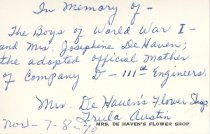 In Memory of -
The Boys of World War I -
and Mrs. Josephine De Haven;
the adopted official mother
of Company D - 111th Engineers.
Mrs. De Haven's Flower Shop
Austin
MRS. DE HAVEN'S FLOWER SHOP
Nov - 7 - 8 - 70